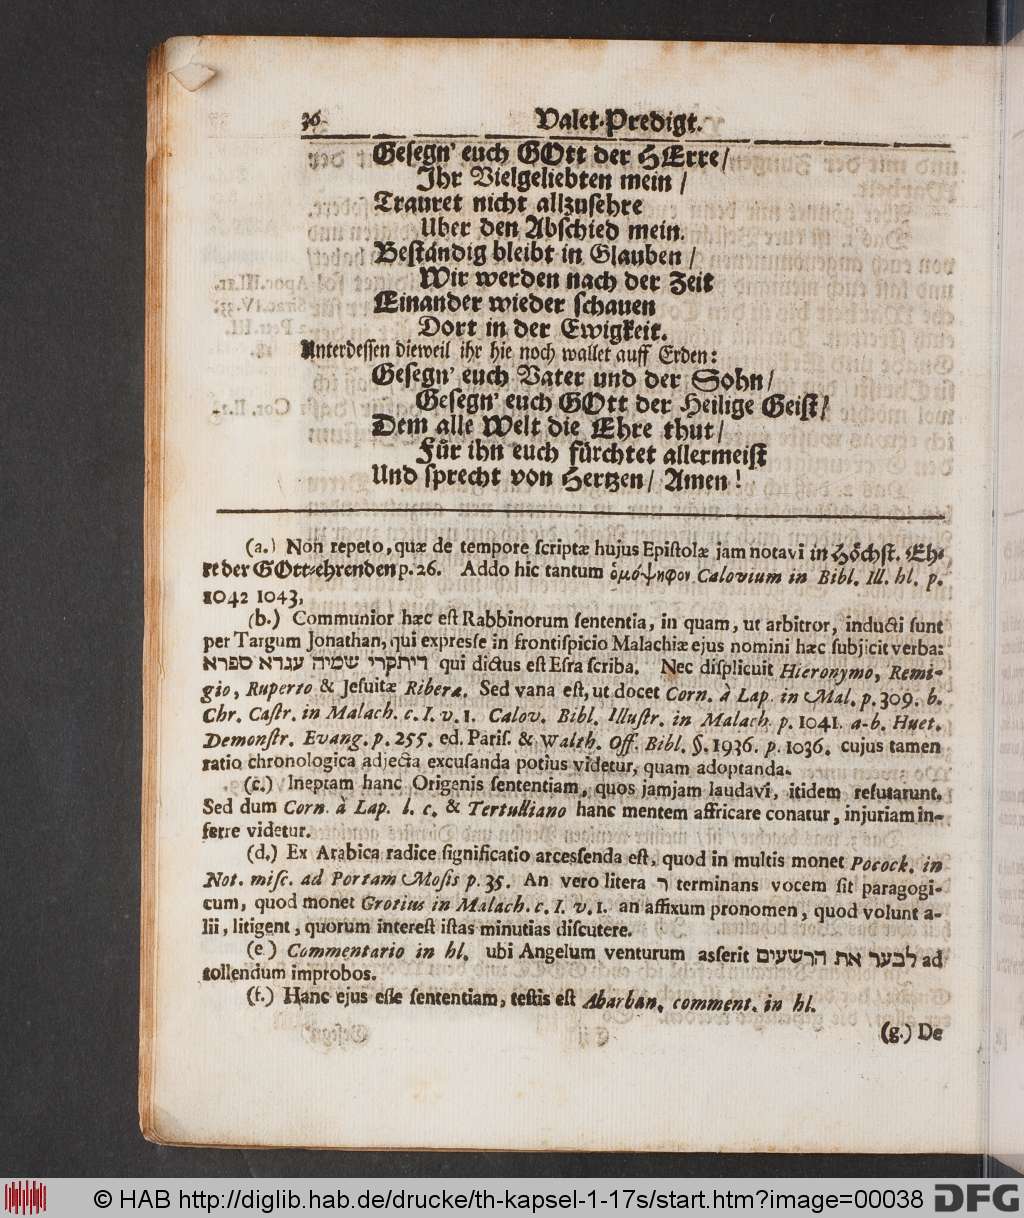 36 Valet-Predigt.
Gesegn' euch GOtt der HErre/
Ihr Vielgeliebten mein /
Trauret nicht allzusehre
Uber den Abschied mein.
Beständig bleibt in Glauben /
Wir werden nach der Zeit
Einander wieder schauen
Dort in der Ewigkeit.
Unterdessen dieweil ihr hie noch wallet auff Erden:
Gesegn' euch Vater und der Sohn/
Gesegn' euch GOtt der Heilige Geist/
Dem alle Welt die Ehre thut/
Für ihn euch fürchtet allermeist
Und sprecht von Hertzen/ Amen!
(a.) Non repeto, quæ de tempore scriptæ hujus Epistolæ jam notavi in Höchst. Eh-
re der GOtt-ehrenden p. 26. Addo hic tantum ὁμόψηφον Calovium in Bibl. Ill. hl. p.
1042 1043,
(b.) Communior hæc est Rabbinorum sententia, in quam, ut arbitror, inducti sunt
per Targum Jonathan, qui expresse in frontispicio Malachiæ ejus nomini hæc subjicit verba:
דיתקרי שמיה עגרא ספרא qui dictus est Esra scriba. Nec displicuit Hieronymo, Remi-
gio, Ruperto & Jesuitæ Riberæ. Sed vana est, ut docet Corn. à Lap. in Mal. p. 309. b.
Chr. Castr. in Malach. c. I. v. 1. Calov. Bibl. Illustr. in Malach. p. 1041. a-b. Huet.
Demonstr. Evang. p. 255. ed. Paris. & Walth. Off. Bibl. §. 1936. p. 1036. cujus tamen
ratio chronologica adjecta excusanda potius videtur, quam adoptanda.
(c.) Ineptam hanc Origenis sententiam, quos jamjam laudavi, itidem refutarunt.
Sed dum Corn. à Lap. l. c. & Tertulliano hanc mentem affricare conatur, injuriam in-
ferre videtur.
(d.) Ex Arabica radice significatio arcessenda est, quod in multis monet Pocock. in
Not. misc. ad Portam Mosis p. 35. An vero litera י terminans vocem sit paragogi-
cum, quod monet Grotius in Malach. c. I. v. 1. an affixum pronomen, quod volunt a-
lii, litigent, quorum interest istas minutias discutere.
(e.) Commentario in hl. ubi Angelum venturum asserit לבער את הרשעים ad
tollendum improbos.
(f.) Hanc ejus esse sententiam, testis est Abarban. comment. in hl.
(g.) De
© HAB http://diglib.hab.de/drucke/th-kapsel-1-17s/start.htm?image=00038 DFG